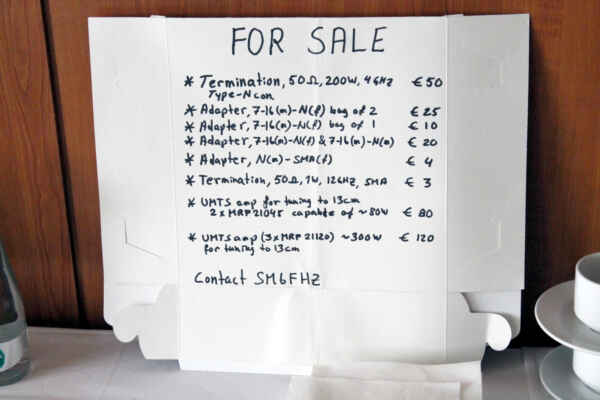 FOR SALE
* Termination, 50Ω, 200W, 4GHz € 50
Type-N con.
* Adapter, 7-16(m)-N(f) bag of 2 € 25
* Adapter, 7-16(m)-N(f) bag of 1 € 10
* Adapter, 7-16(m)-N(f) & 7-16(m)-N(m) € 20
* Adapter, N(m)-SMA(f) € 4
* Termination, 50Ω, 1W, 12GHz, SMA € 3
* UMTS amp for tuning to 13cm
2xMRF21045 capable of ~80W € 80
* UMTS amp (3xMRF21120) ~300W € 120
for tuning to 13cm
Contact SM6FHZ